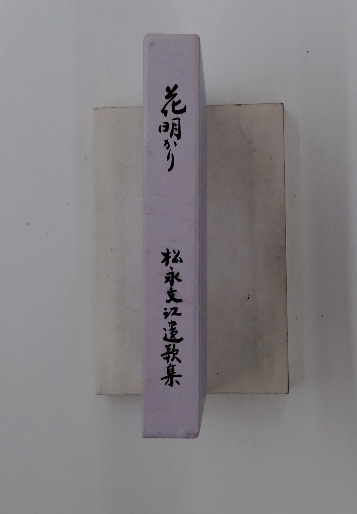 花明かり
松永文江遺歌集